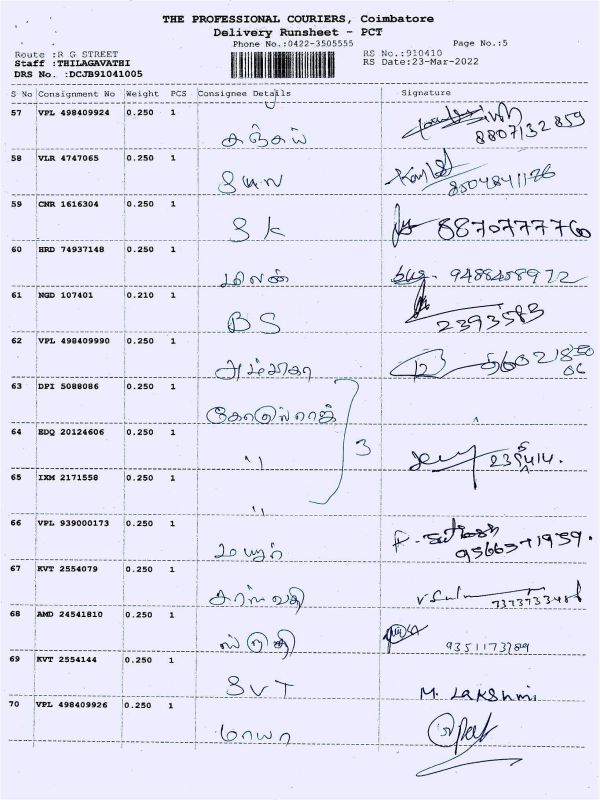 THE PROFESSIONAL COURIERS, Coimbatore
Delivery Runsheet - PCT
Phone No.:0422-3505555 Page No.:5
Route :R G STREET RS No.:910410
Staff :THILAGAVATHI RS Date:23-Mar-2022
DRS No. :DCJB91041005
S No Consignment No Weight PCS Consignee Details Signature
57 VPL 498409924 0.250 1
சஞ்சய் 8807132859
58 VLR 4747065 0.250 1
59 CNR 1616304 0.250 1
S K 8870777760
60 HRD 74937148 0.250 1
மிலன் 9488458972
61 NGD 107401 0.210 1
B S 2393583
62 VPL 498409990 0.250 1
அம்பிகா
63 DPI 5088086 0.250 1
64 EDQ 20124606 0.250 1
" 3
65 IXM 2171558 0.250 1
"
66 VPL 939000173 0.250 1
மயூர்
67 KVT 2554079 0.250 1
சரஸ்வதி
68 AMD 24541810 0.250 1
ஸ்ருதி 9351173789
69 KVT 2554144 0.250 1
SVT M. LAKSHMI
70 VPL 498409926 0.250 1
மாயா